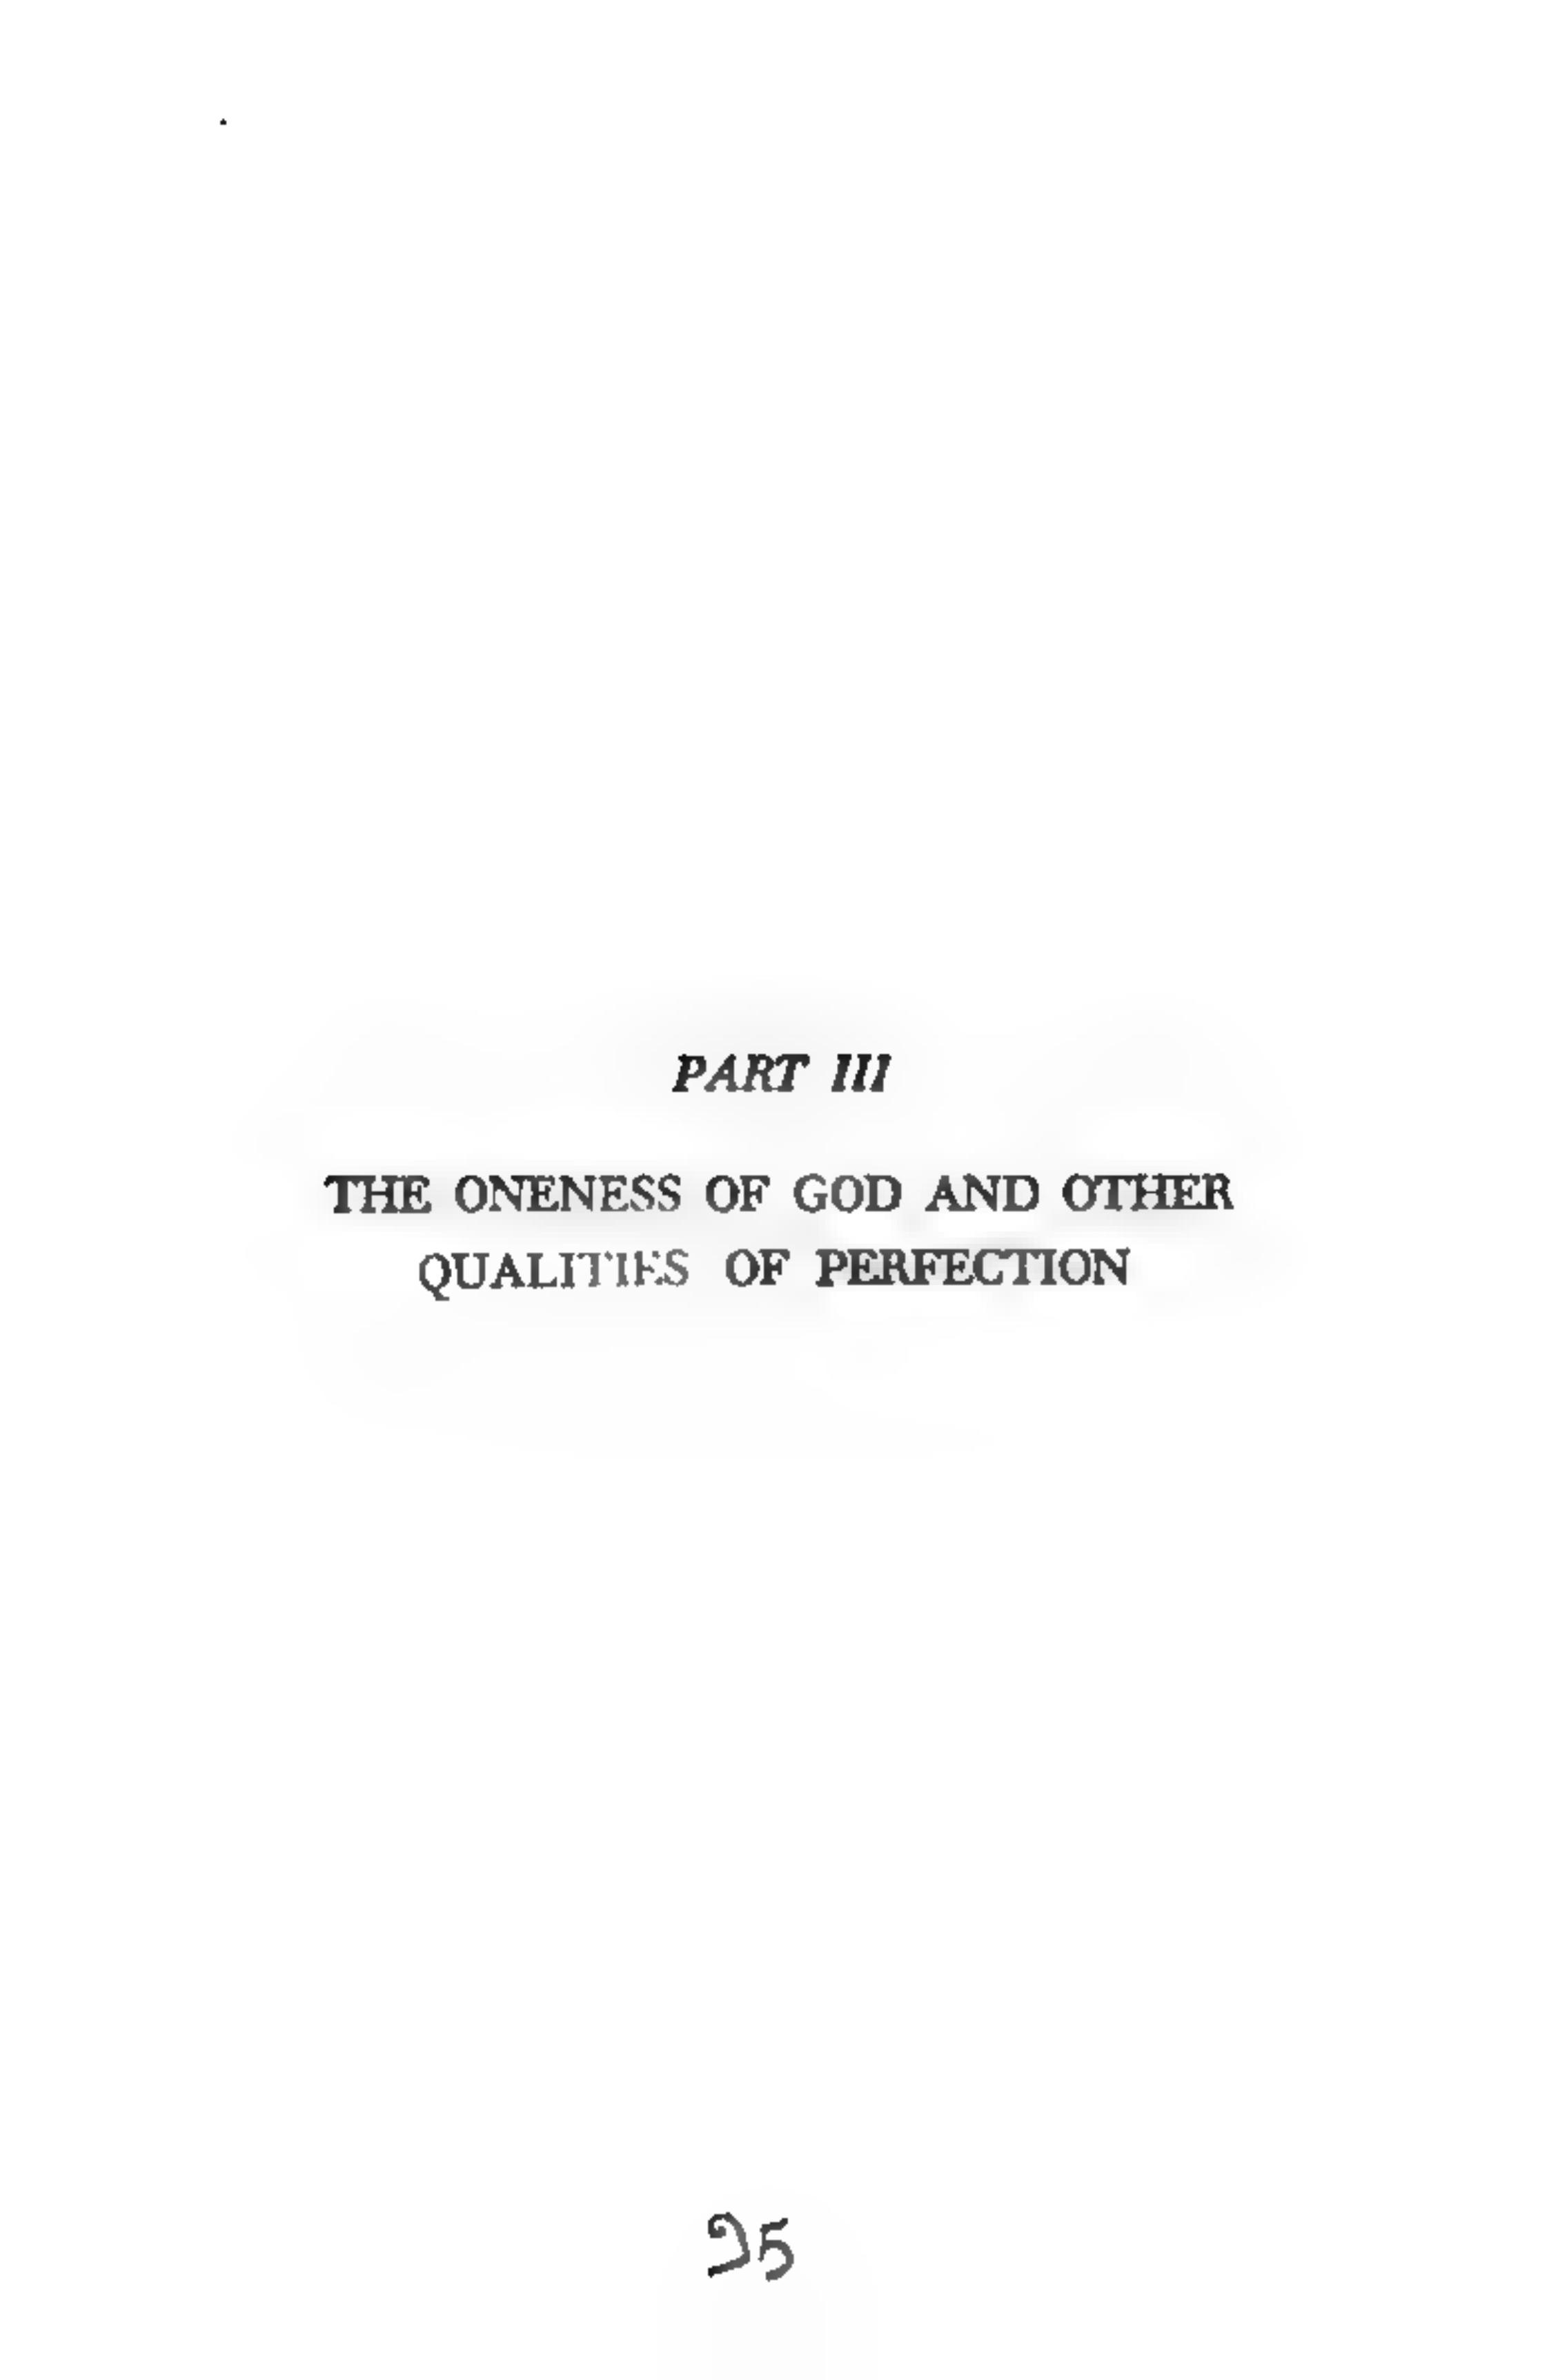 PART III
THE ONENESS OF GOD AND OTHER
QUALITIES OF PERFECTION
95